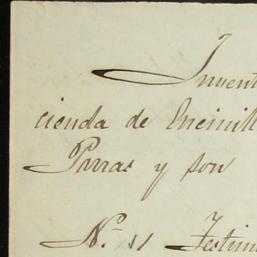 Invent
cienda de Encinill
Parras y son
N. 11 Testim